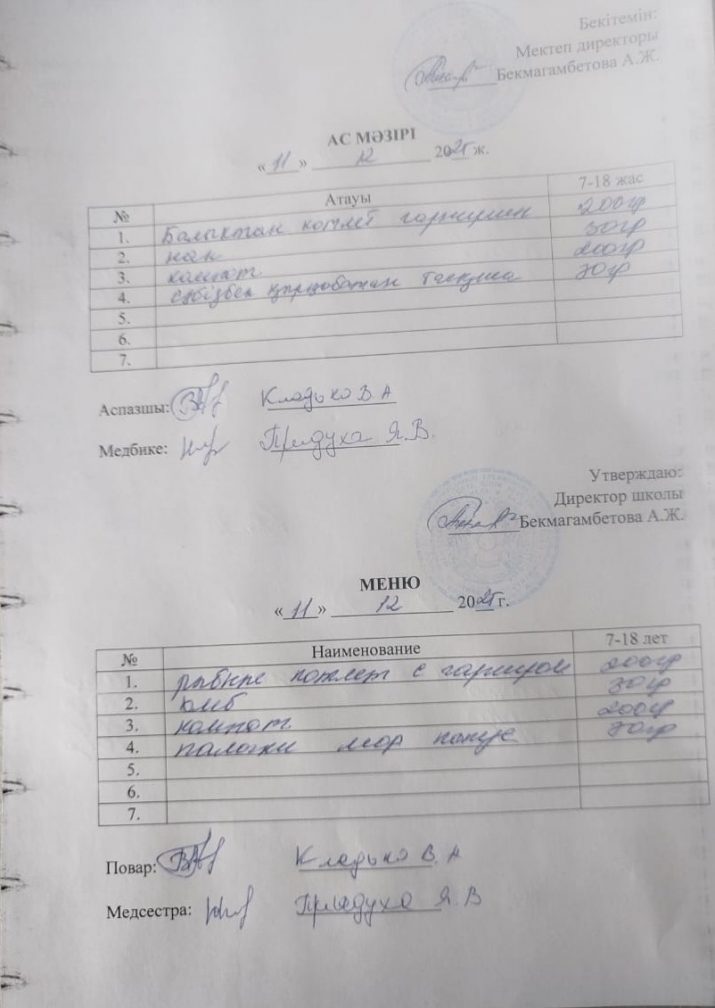 Бекітемін:
Мектеп директоры
Бекмагамбетова А.Ж.
АС МӘЗІРІ
« 11 » 12 2025 ж.
№ Атауы 7-18 жас
1. Балыктан котлет гарнирмен 200гр
2. нан 30гр
3. компот 200гр
4. сәбізбен 70гр
5.
6.
7.
Аспазшы: Кладько В А
Медбике: Придуха Я.В.
Утверждаю:
Директор школы
Бекмагамбетова А.Ж.
МЕНЮ
« 11 » 12 2025 г.
№ Наименование 7-18 лет
1. рыбные котлеты с гарниром 200гр
2. хлеб 30гр
3. компот 200гр
4. палочки мор 70гр
5.
6.
7.
Повар: Кладько В. А
Медсестра: Придуха Я.В